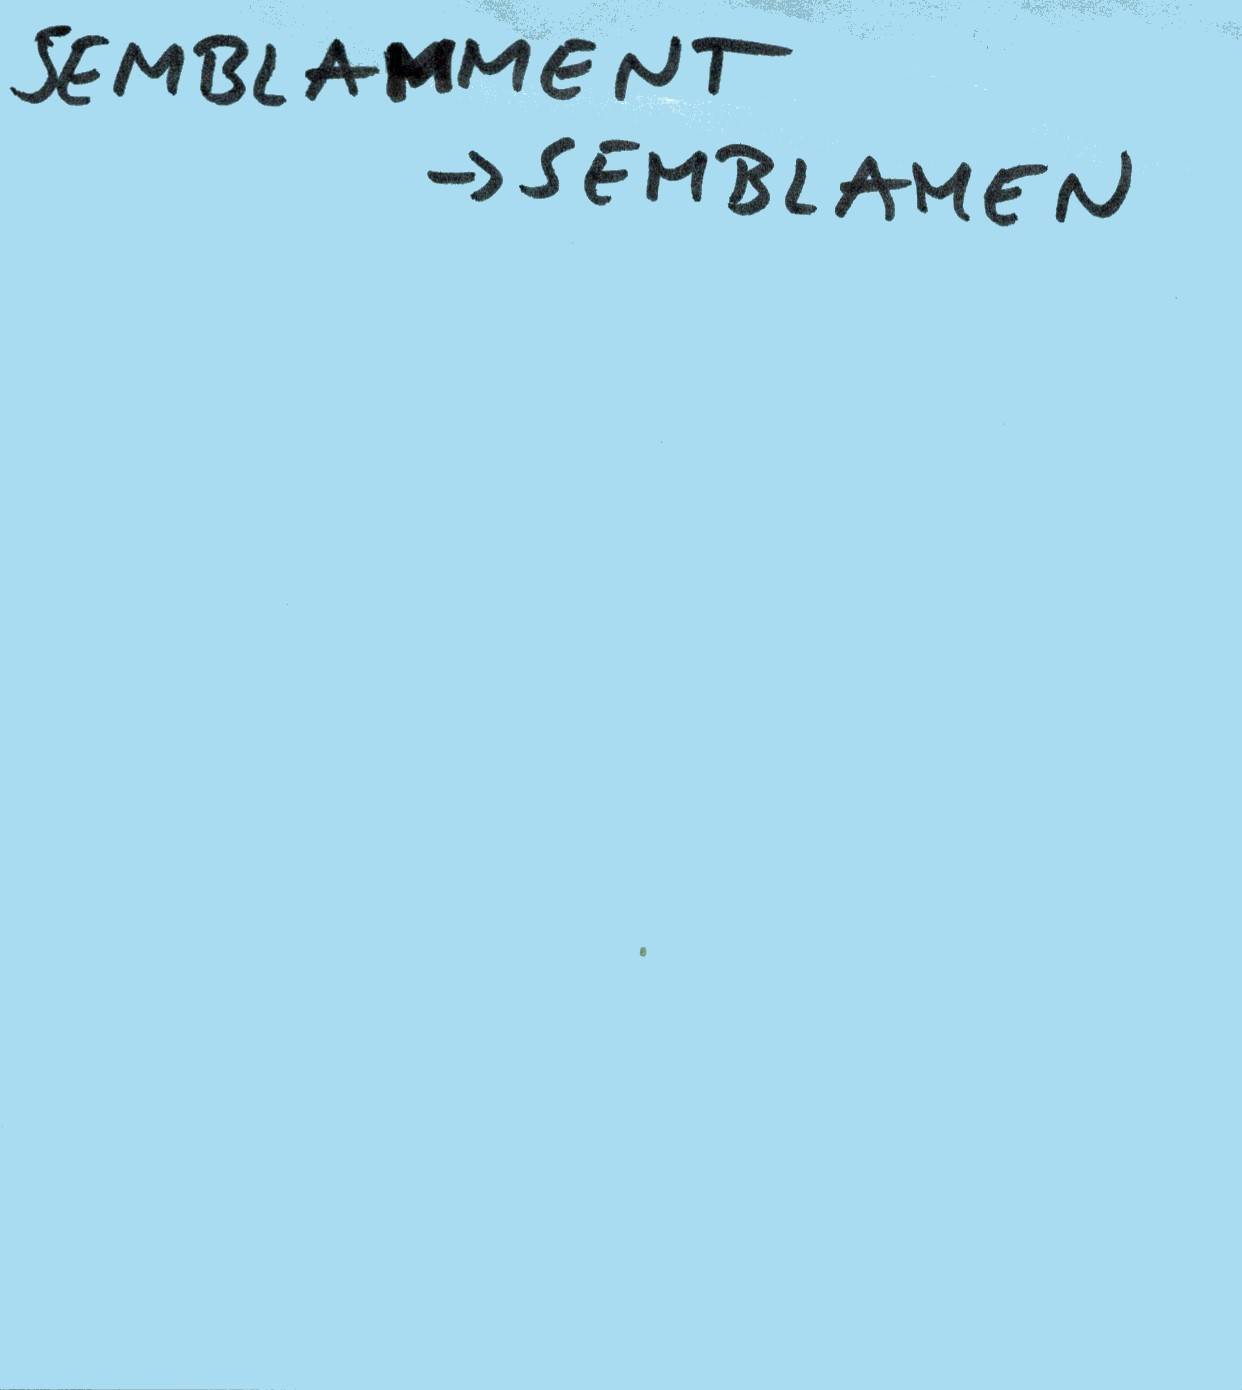 SEMBLAMMENT
→SEMBLAMEN